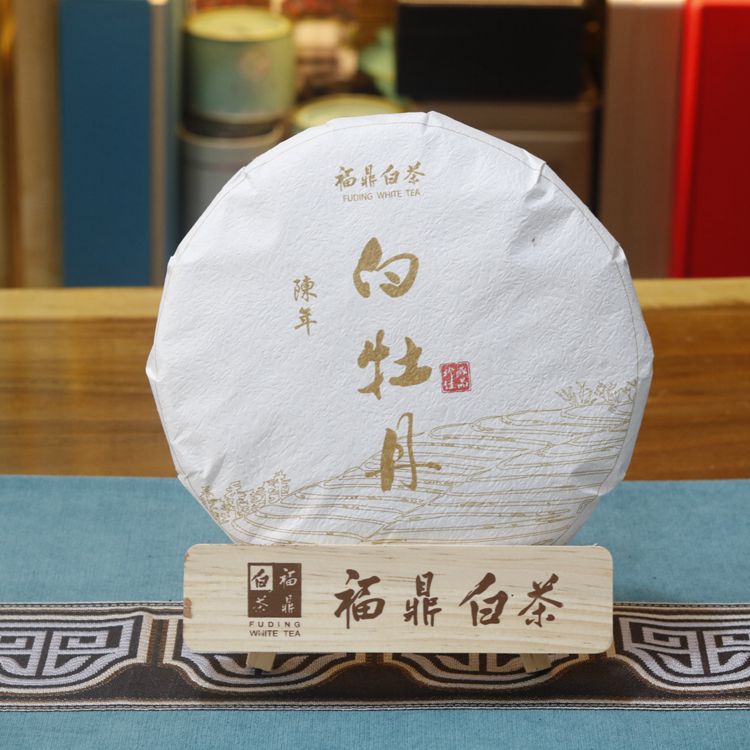 福鼎白茶
FUDING WHITE TEA
陳年
白牡丹
福鼎
白茶
FUDING
WHITE TEA
福鼎白茶